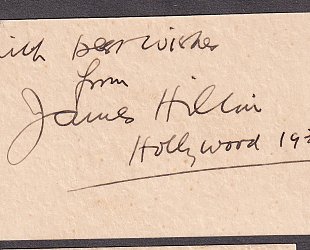 with best wishes
from
James Hilton
Hollywood 193